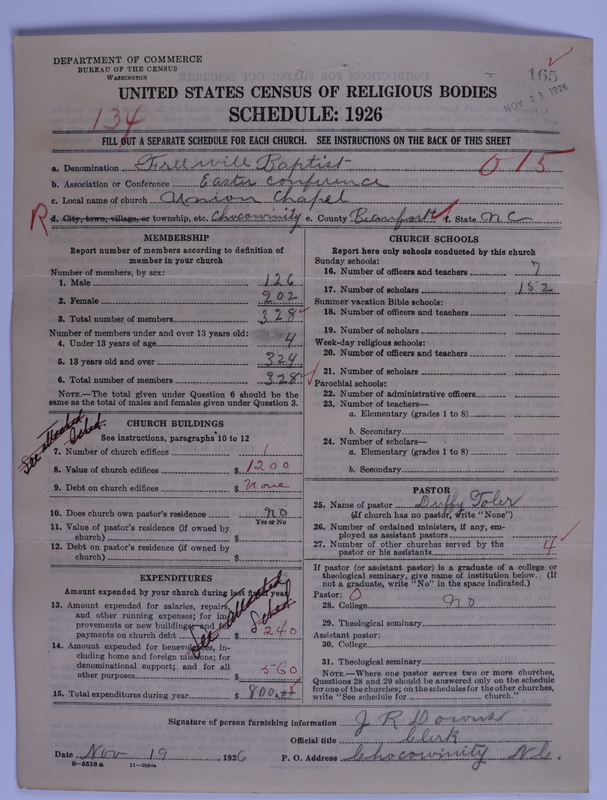 DEPARTMENT OF COMMERCE
BUREAU OF THE CENSUS
WASHINGTON
165
NOV 23 1926
UNITED STATES CENSUS OF RELIGIOUS BODIES
SCHEDULE: 1926
134
FILL OUT A SEPARATE SCHEDULE FOR EACH CHURCH. SEE INSTRUCTIONS ON THE BACK OF THIS SHEET
a. Denomination Freewill Baptist 0 15
b. Association or Conference Easter Conference
c. Local name of church Union Chapel
R d. City, town, village, or township, etc. Chocowinity e. County Beaufort f. State N C
MEMBERSHIP
Report number of members according to definition of
member in your church
Number of members, by sex:
1. Male 126
2. Female 202
3. Total number of members 328
Number of members under and over 13 years old:
4. Under 13 years of age 4
5. 13 years old and over 324
6. Total number of members 328
NOTE.—The total given under Question 6 should be the
same as the total of males and females given under Question 3.
See attached Sched.
CHURCH BUILDINGS
See instructions, paragraphs 10 to 12
7. Number of church edifices 1
8. Value of church edifices $ 1200
9. Debt on church edifices $ None
10. Does church own pastor's residence no
Yes or No
11. Value of pastor's residence (if owned by
church) $
12. Debt on pastor's residence (if owned by
church) $
EXPENDITURES
Amount expended by your church during last fiscal year
13. Amount expended for salaries, repairs,
and other running expenses; for im-
provements or new buildings; and for
payments on church debt $ 240
See attached Sched.
14. Amount expended for benevolences, in-
cluding home and foreign missions; for
denominational support; and for all
other purposes $ 560
15. Total expenditures during year $ 800
CHURCH SCHOOLS
Report here only schools conducted by this church
Sunday schools:
16. Number of officers and teachers 7
17. Number of scholars 152
Summer vacation Bible schools:
18. Number of officers and teachers
19. Number of scholars
Week-day religious schools:
20. Number of officers and teachers
21. Number of scholars
Parochial schools:
22. Number of administrative officers
23. Number of teachers—
a. Elementary (grades 1 to 8)
b. Secondary
24. Number of scholars—
a. Elementary (grades 1 to 8)
b. Secondary
PASTOR
25. Name of pastor Duffy Toler
(If church has no pastor, write "None")
26. Number of ordained ministers, if any, em-
ployed as assistant pastors
27. Number of other churches served by the
pastor or his assistants 4
If pastor (or assistant pastor) is a graduate of a college or
theological seminary, give name of institution below. (If
not a graduate, write "No" in the space indicated.)
Pastor: 0
28. College no
29. Theological seminary
Assistant pastor:
30. College
31. Theological seminary
NOTE.—Where one pastor serves two or more churches,
Questions 28 and 29 should be answered only on the schedule
for one of the churches; on the schedules for the other churches,
write "See schedule for church."
Signature of person furnishing information J R Downs
Official title Clerk
Date Nov 19, 1926 P. O. Address Chocowinity N. C.
8—5518a 11—9054a